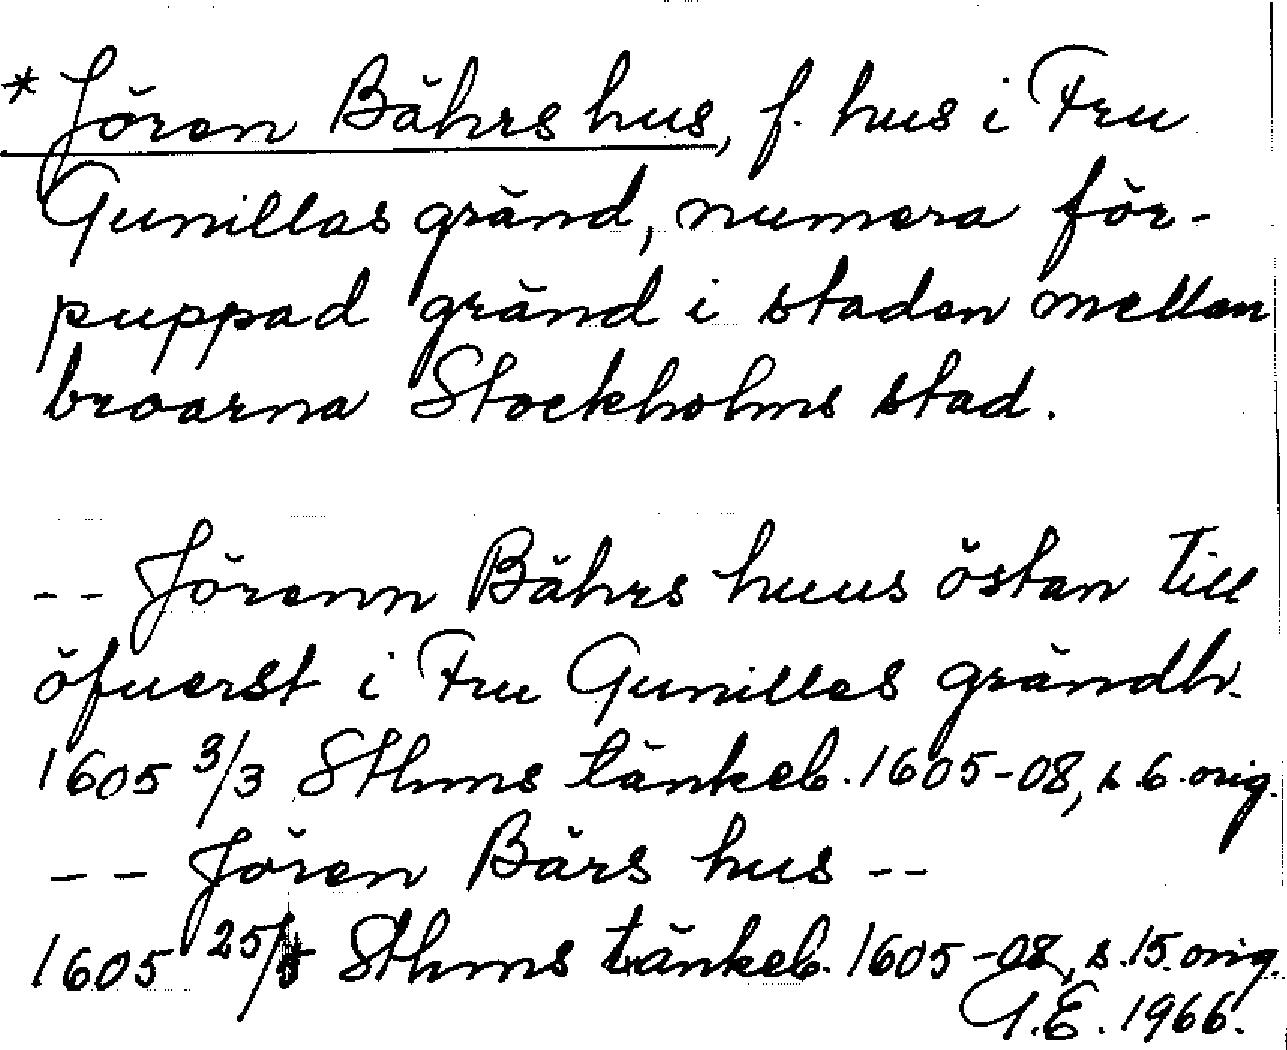 * Jören Bährs hus, f. hus i Fru
Gunillas gränd, numera för-
puppad gränd i staden mellan
broarna Stockholms stad.
-- Jörenn Bährs huus östan till
öfuerst i Fru Gunilles grändh.
1605 3/3 Sthms tänkeb. 1605-08, s. 6. orig.
-- Jören Bärs hus --
1605 25/ Sthms tänkeb. 1605-08, s. 15. orig.
G.E. 1966.